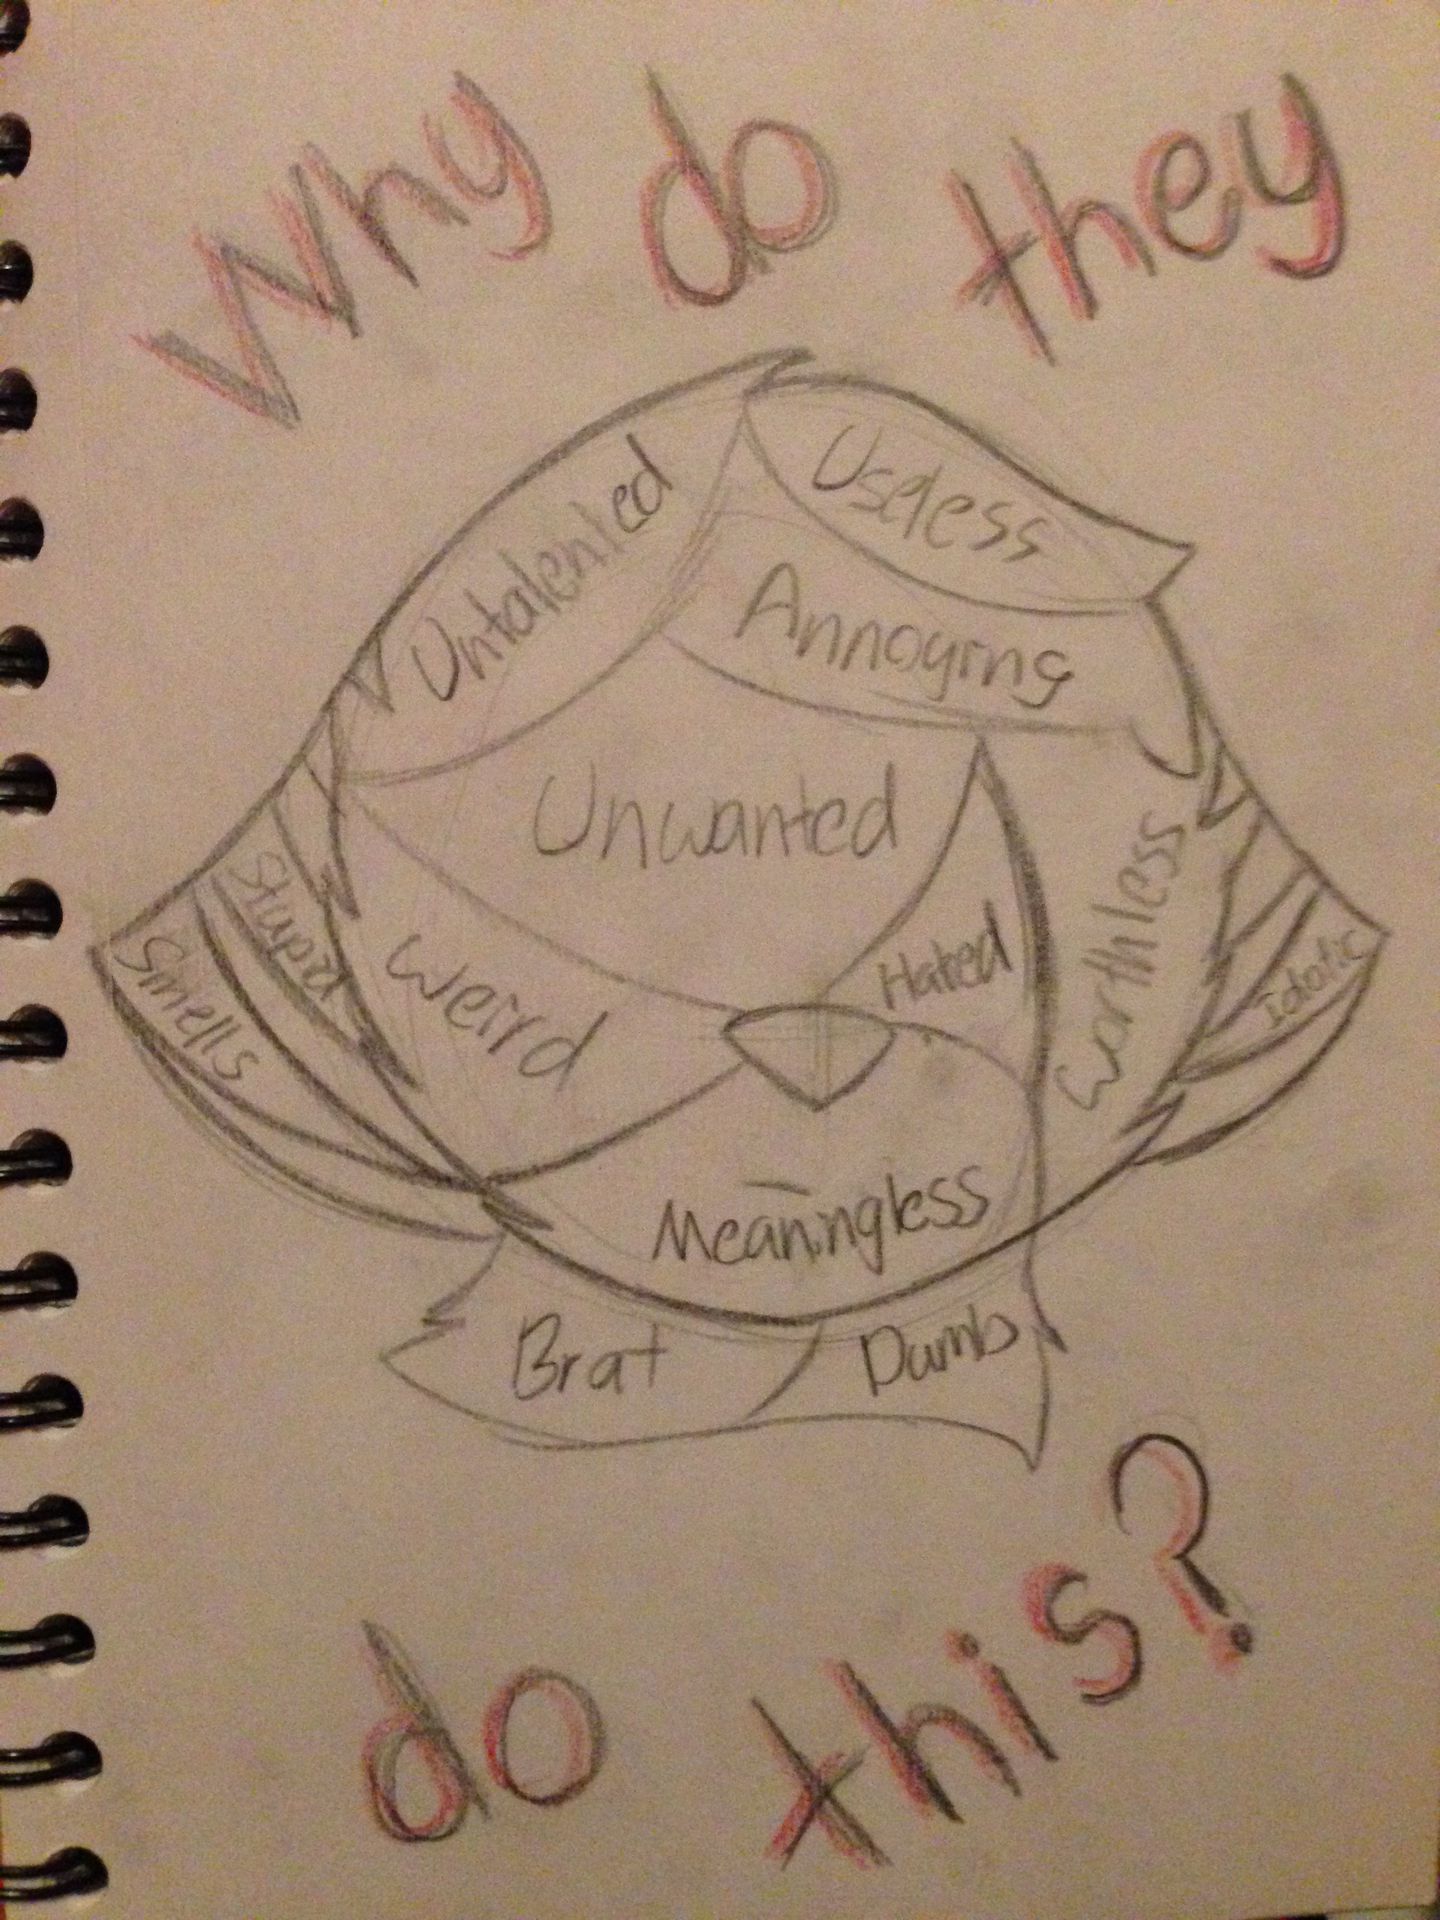 Why do they
Untalented
Useless
Annoying
Unwanted
Stupid
Smells
Weird
Hated
Worthless
Idiotic
Meaningless
Brat
Dumb
do this?